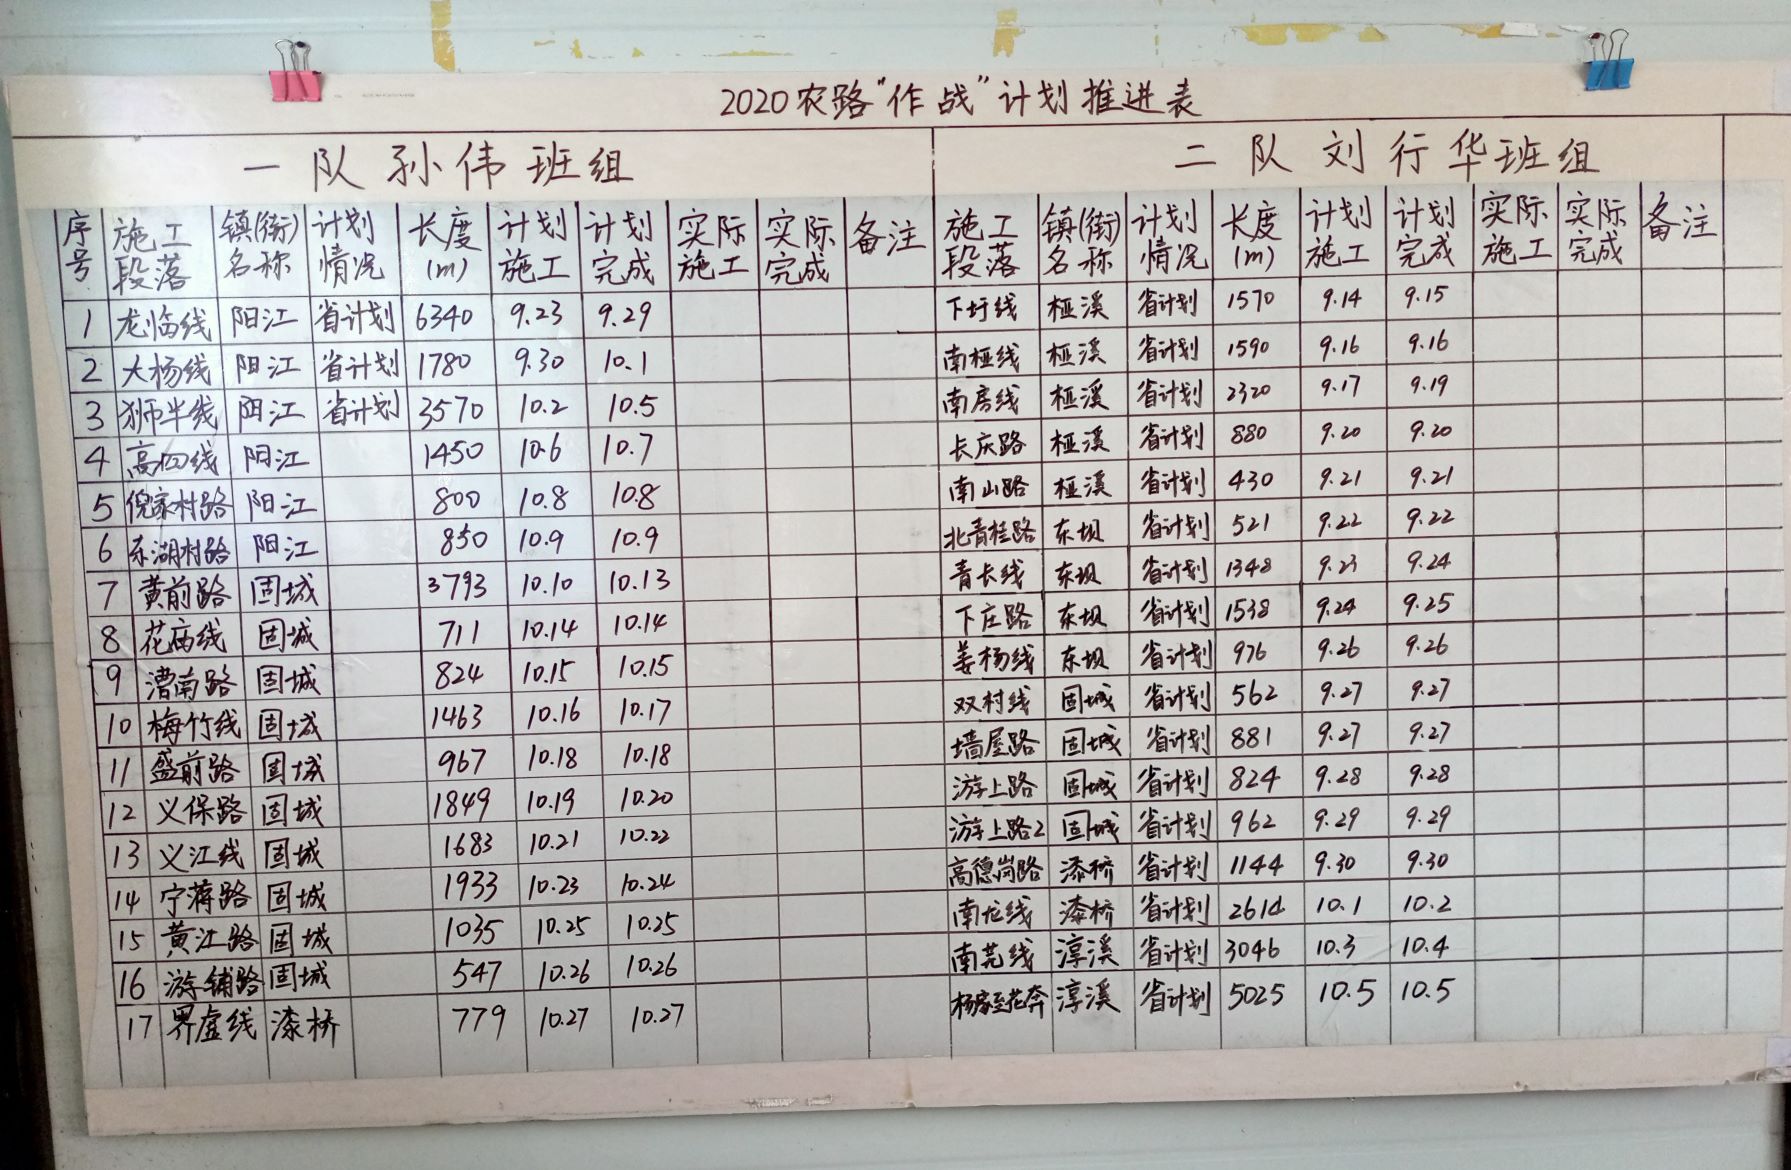 2020农路“作战”计划推进表
一队 孙伟班组 二队 刘行华班组
序号 施工段落 镇(街)名称 计划情况 长度(m) 计划施工 计划完成 实际施工 实际完成 备注 施工段落 镇(街)名称 计划情况 长度(m) 计划施工 计划完成 实际施工 实际完成 备注
1 龙临线 阳江 省计划 6340 9.23 9.29 下圩线 桠溪 省计划 1570 9.14 9.15
2 大杨线 阳江 省计划 1780 9.30 10.1 南桠线 桠溪 省计划 1590 9.16 9.16
3 狮半线 阳江 省计划 3570 10.2 10.5 南房线 桠溪 省计划 2320 9.17 9.19
4 高四线 阳江 1450 10.6 10.7 长庆路 桠溪 省计划 880 9.20 9.20
5 倪家村路 阳江 800 10.8 10.8 南山路 桠溪 省计划 430 9.21 9.21
6 东湖村路 阳江 850 10.9 10.9 北青桂路 东坝 省计划 521 9.22 9.22
7 黄前路 固城 3793 10.10 10.13 青长线 东坝 省计划 1348 9.23 9.24
8 花庙线 固城 711 10.14 10.14 下庄路 东坝 省计划 1538 9.24 9.25
9 漕南路 固城 824 10.15 10.15 姜杨线 东坝 省计划 976 9.26 9.26
10 梅竹线 固城 1463 10.16 10.17 双村线 固城 省计划 562 9.27 9.27
11 盛前路 固城 967 10.18 10.18 墙屋路 固城 省计划 881 9.27 9.27
12 义保路 固城 1849 10.19 10.20 游上路 固城 省计划 824 9.28 9.28
13 义江线 固城 1683 10.21 10.22 游上路2 固城 省计划 962 9.29 9.29
14 宁蒋路 固城 1933 10.23 10.24 高德岗路 漆桥 省计划 1144 9.30 9.30
15 黄江路 固城 1035 10.25 10.25 南龙线 漆桥 省计划 2614 10.1 10.2
16 游铺路 固城 547 10.26 10.26 南芜线 淳溪 省计划 3046 10.3 10.4
17 界虚线 漆桥 779 10.27 10.27 杨家至花奔 淳溪 省计划 5025 10.5 10.5